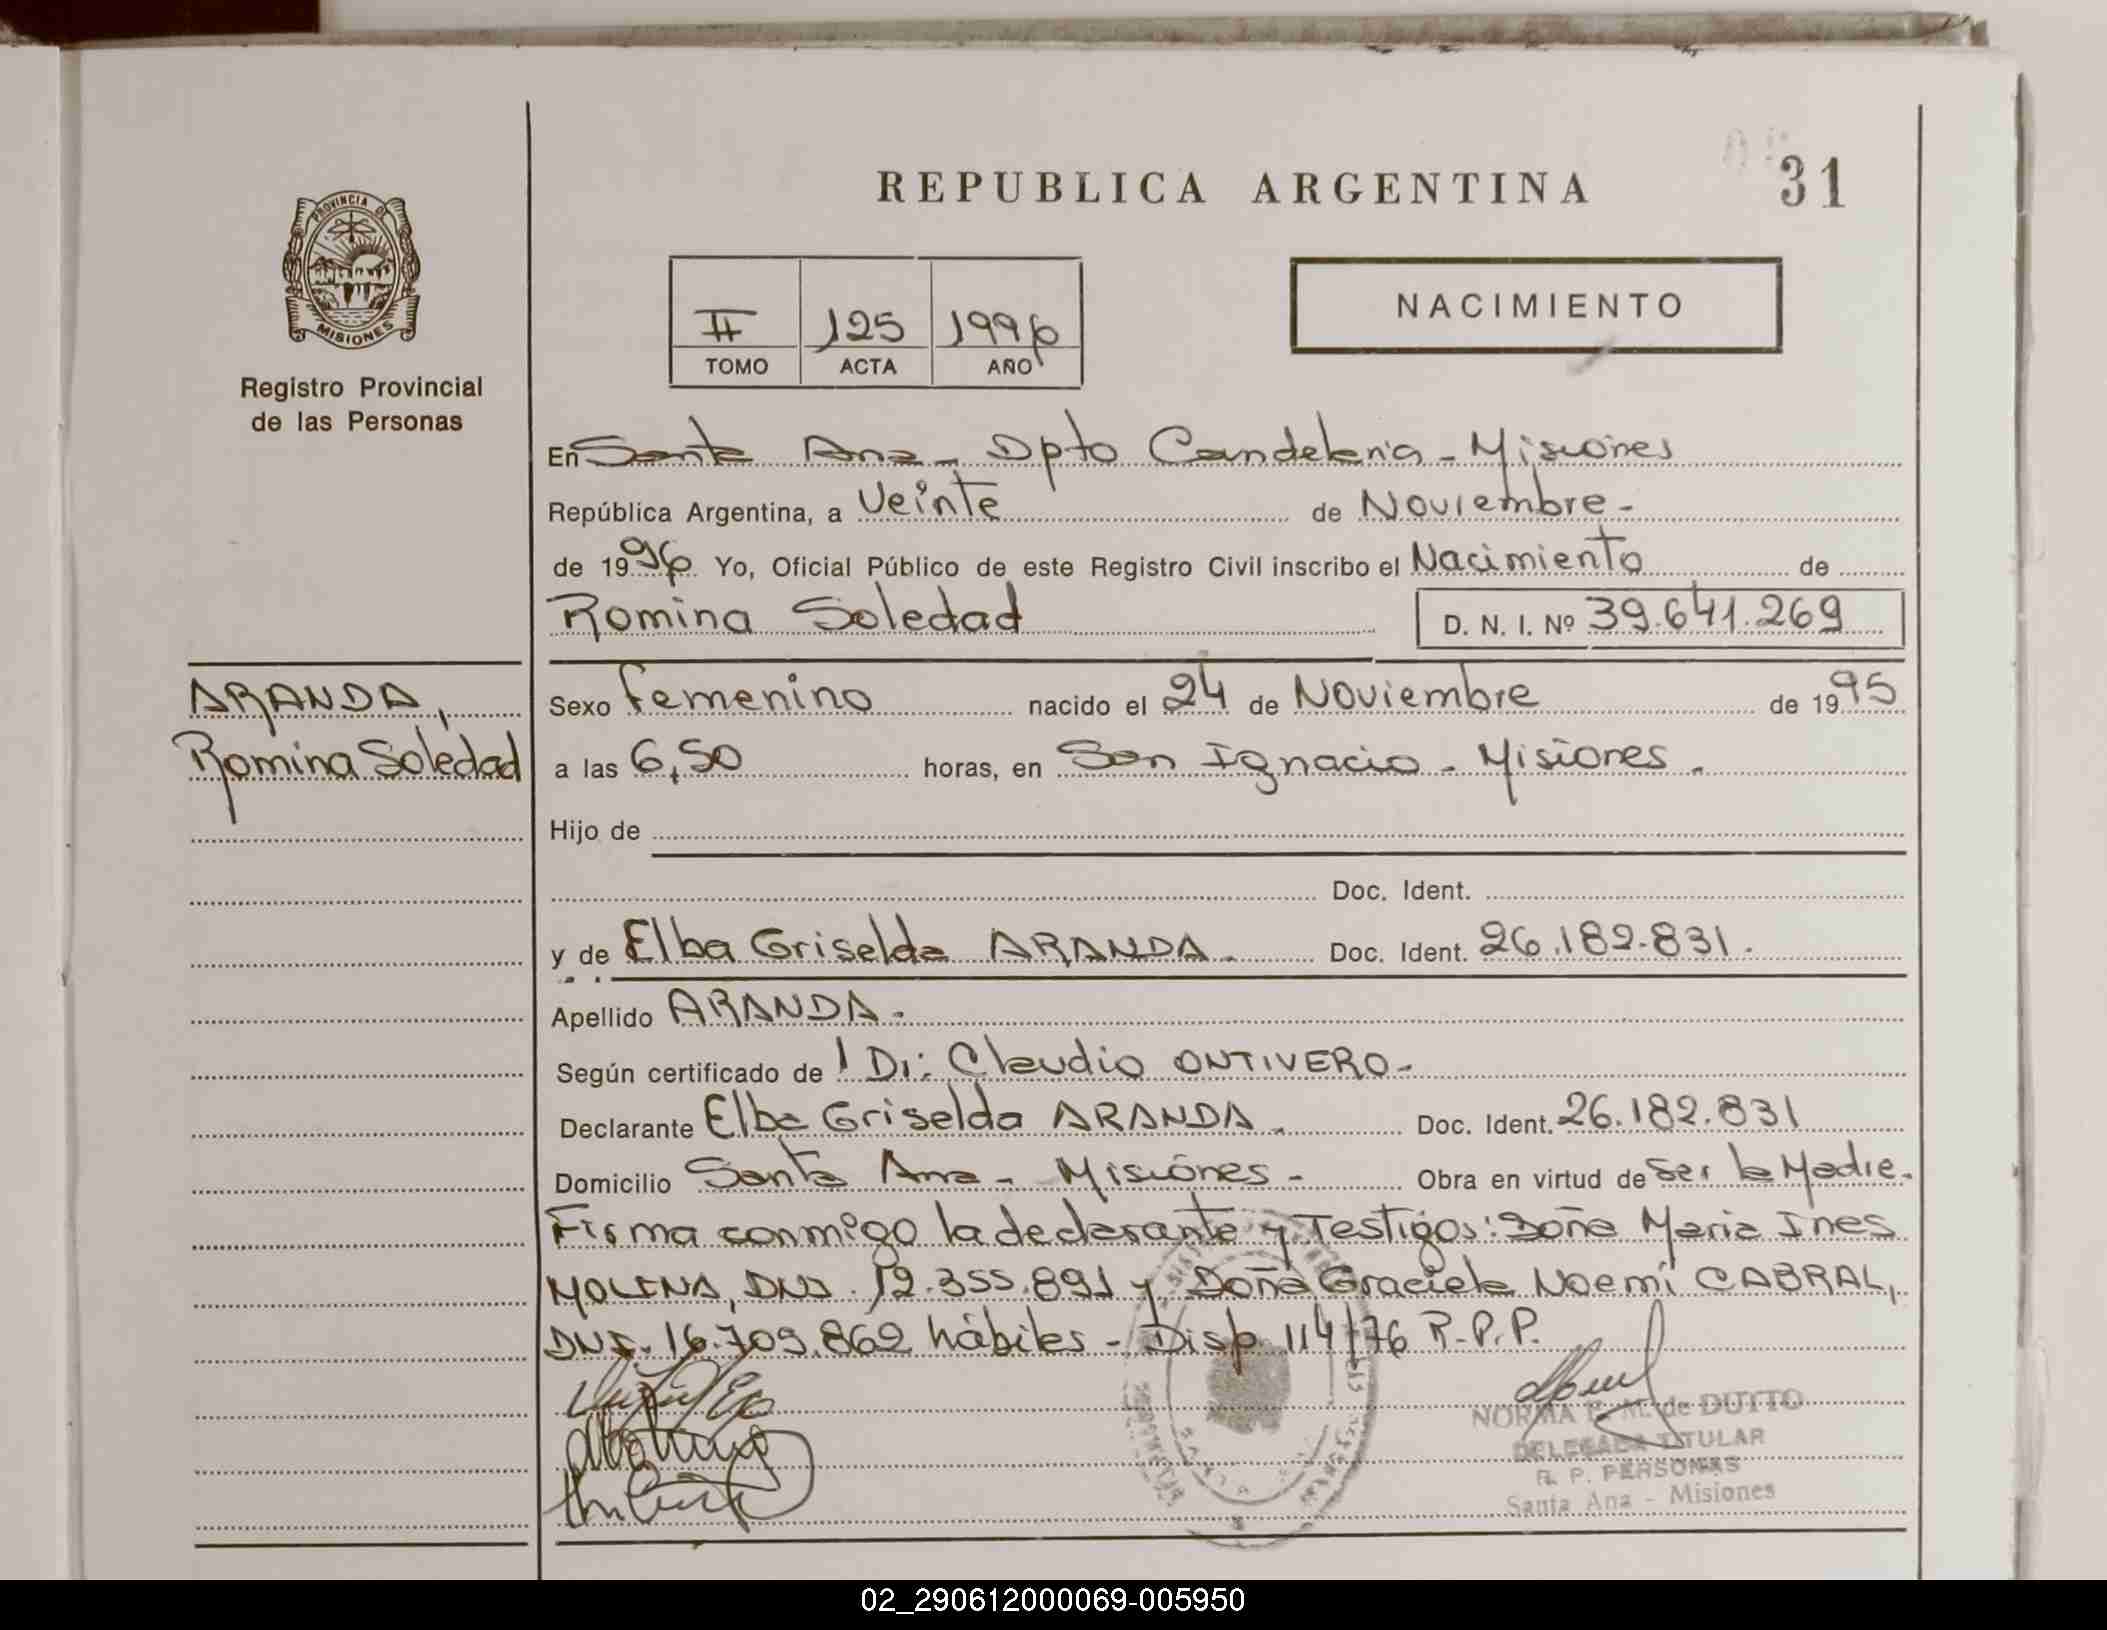 REPUBLICA ARGENTINA
31
PROVINCIA DE
MISIONES
Registro Provincial
de las Personas
II 125 1996
TOMO ACTA AÑO
NACIMIENTO
En Santa Ana - Dpto Candelaria - Misiones
República Argentina, a Veinte de Noviembre -
de 1996 Yo, Oficial Público de este Registro Civil inscribo el Nacimiento de
Romina Soledad D. N. I. Nº 39.641.269
ARANDA,
Romina Soledad
Sexo Femenino nacido el 24 de Noviembre de 1995
a las 6,50 horas, en San Ignacio - Misiones -
Hijo de
Doc. Ident.
y de Elba Griselda ARANDA - Doc. Ident. 26.182.831.
Apellido ARANDA -
Según certificado de l Dr: Claudio ONTIVERO -
Declarante Elba Griselda ARANDA - Doc. Ident. 26.182.831
Domicilio Santa Ana - Misiones - Obra en virtud de ser la Madre.
Firma conmigo la declarante y Testigos: Doña Maria Ines
MOLINA, DNI. 12.355.891 y Doña Graciela Noemi CABRAL,
DNI. 16.709.862 hábiles - Disp. 114/76 R.P.P.
NORMA E. M. de DUTTO
DELEGADA TITULAR
R. P. PERSONAS
Santa Ana - Misiones
02_290612000069-005950